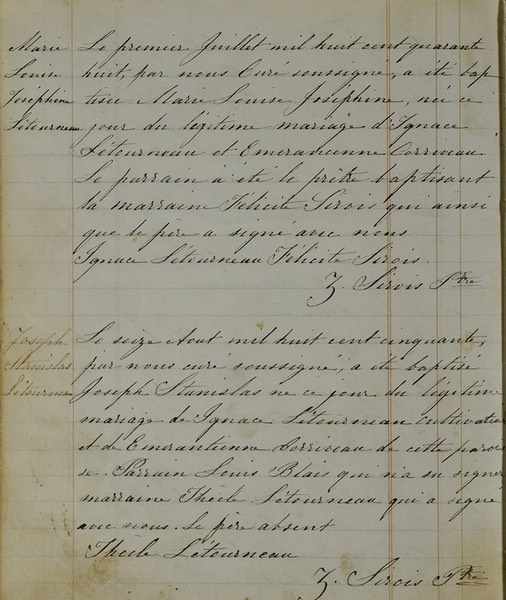 Marie
Louise
Joséphine
Létourneau
Le premier Juillet mil huit cent quarante
huit, par nous Curé soussigné, a été bap
tisée Marie Louise Joséphine, née ce
jour du légitime mariage d'Ignace
Létourneau et Emeradienne Corriveau.
Le parrain a été le prêtre baptisant
la marraine Félicité Sirois qui ainsi
que le père a signé avec nous
Ignace Létourneau Félicité Sirois.
Z. Sirois Ptre
Joseph
Stanislas
Létourneau
Le seize Aout mil huit cent cinquante,
par nous curé soussigné, a été baptisé
Joseph Stanislas né ce jour du légitime
mariage de Ignace Létourneau cultivateur
et de Emerantienne Corriveau de cette parois
se. Parrain Louis Blais qui n'a su signer
marraine Thècle Létourneau qui a signé
avec nous. Le père absent
Thècle Létourneau
Z. Sirois Ptre